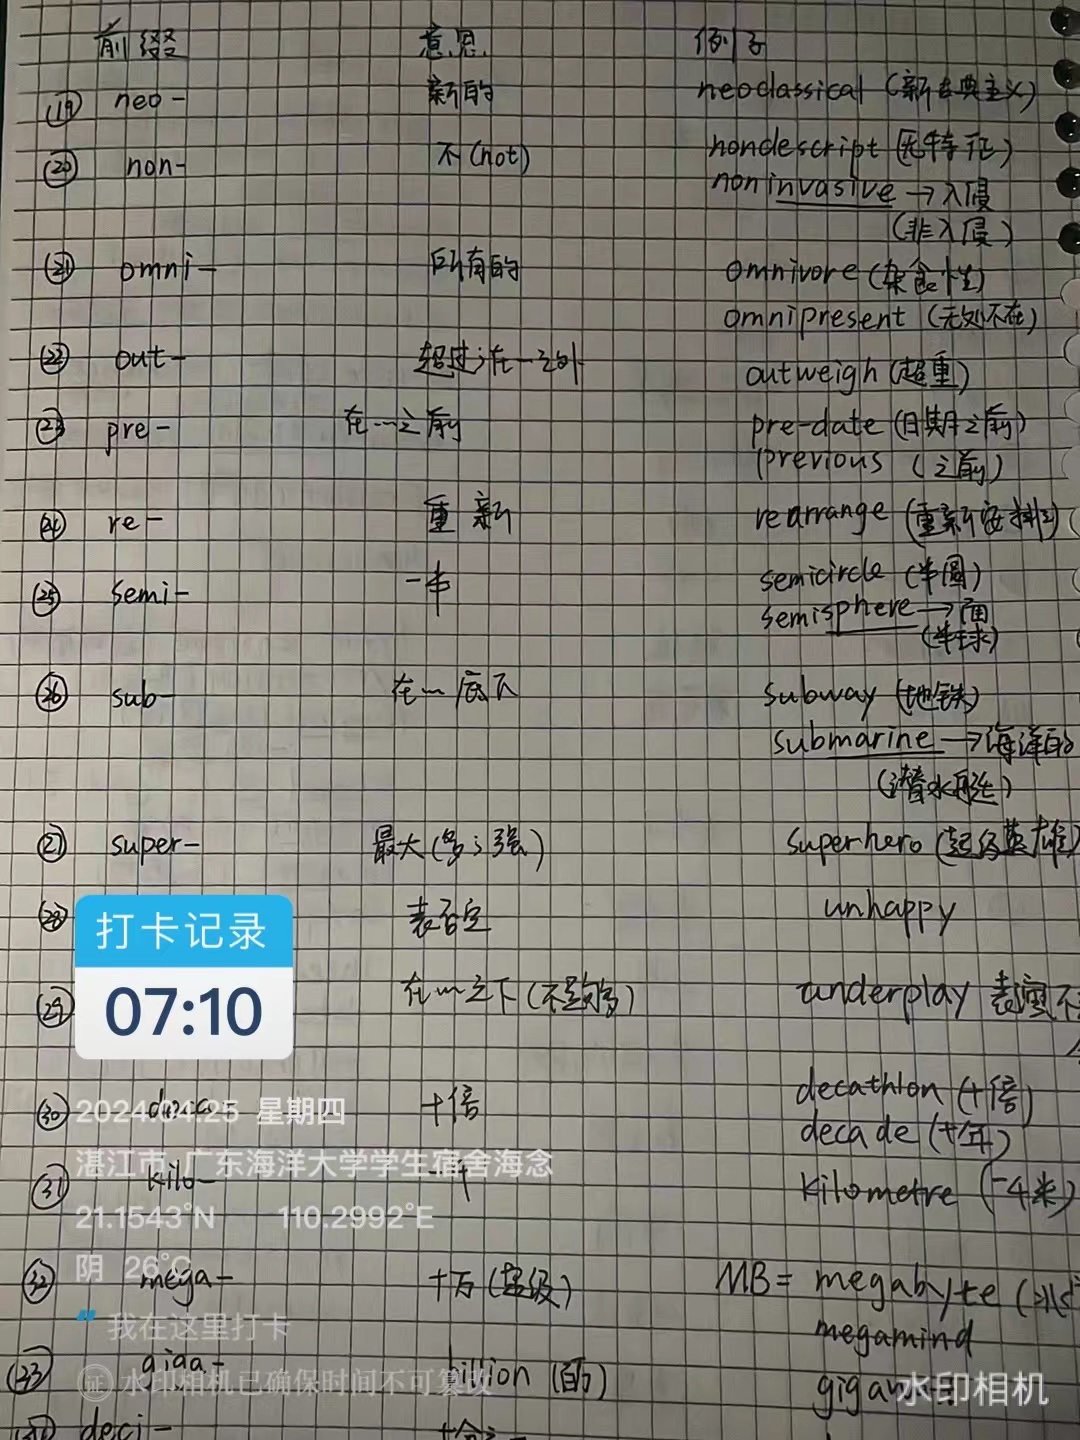 前缀 意思 例子
(19) neo- 新的 neoclassical (新古典主义)
(20) non- 不(not) nondescript (无特征)
noninvasive → 入侵
(非入侵)
(21) omni- 所有的 omnivore (杂食性)
omnipresent (无处不在)
(22) out- 超过;在…之外 outweigh (超重)
(23) pre- 在…之前 pre-date (日期之前)
previous (之前)
(24) re- 重新 rearrange (重新安排)
(25) semi- 一半 semicircle (半圆)
semisphere → 面
(半球)
(26) sub- 在…底下 subway (地铁)
submarine → 海洋的
(潜水艇)
(27) super- 最大(多;强) superhero (超级英雄)
(28) 表否定 unhappy
打卡记录
(29) 在…之下(不足够多) underplay 表演不
07:10
(30) 十倍 decathlon (十倍)
2024.04.25 星期四
decade (十年)
湛江市·广东海洋大学学生宿舍海念
(31) kilo- 一千 kilometre (一千米)
21.1543°N 110.2992°E
阴 26°C
(32) mega- 十万(超级) MB = megabyte
我在这里打卡
megamind
(33) giga- billion
证 水印相机已确保时间不可篡改
水印相机
deci-